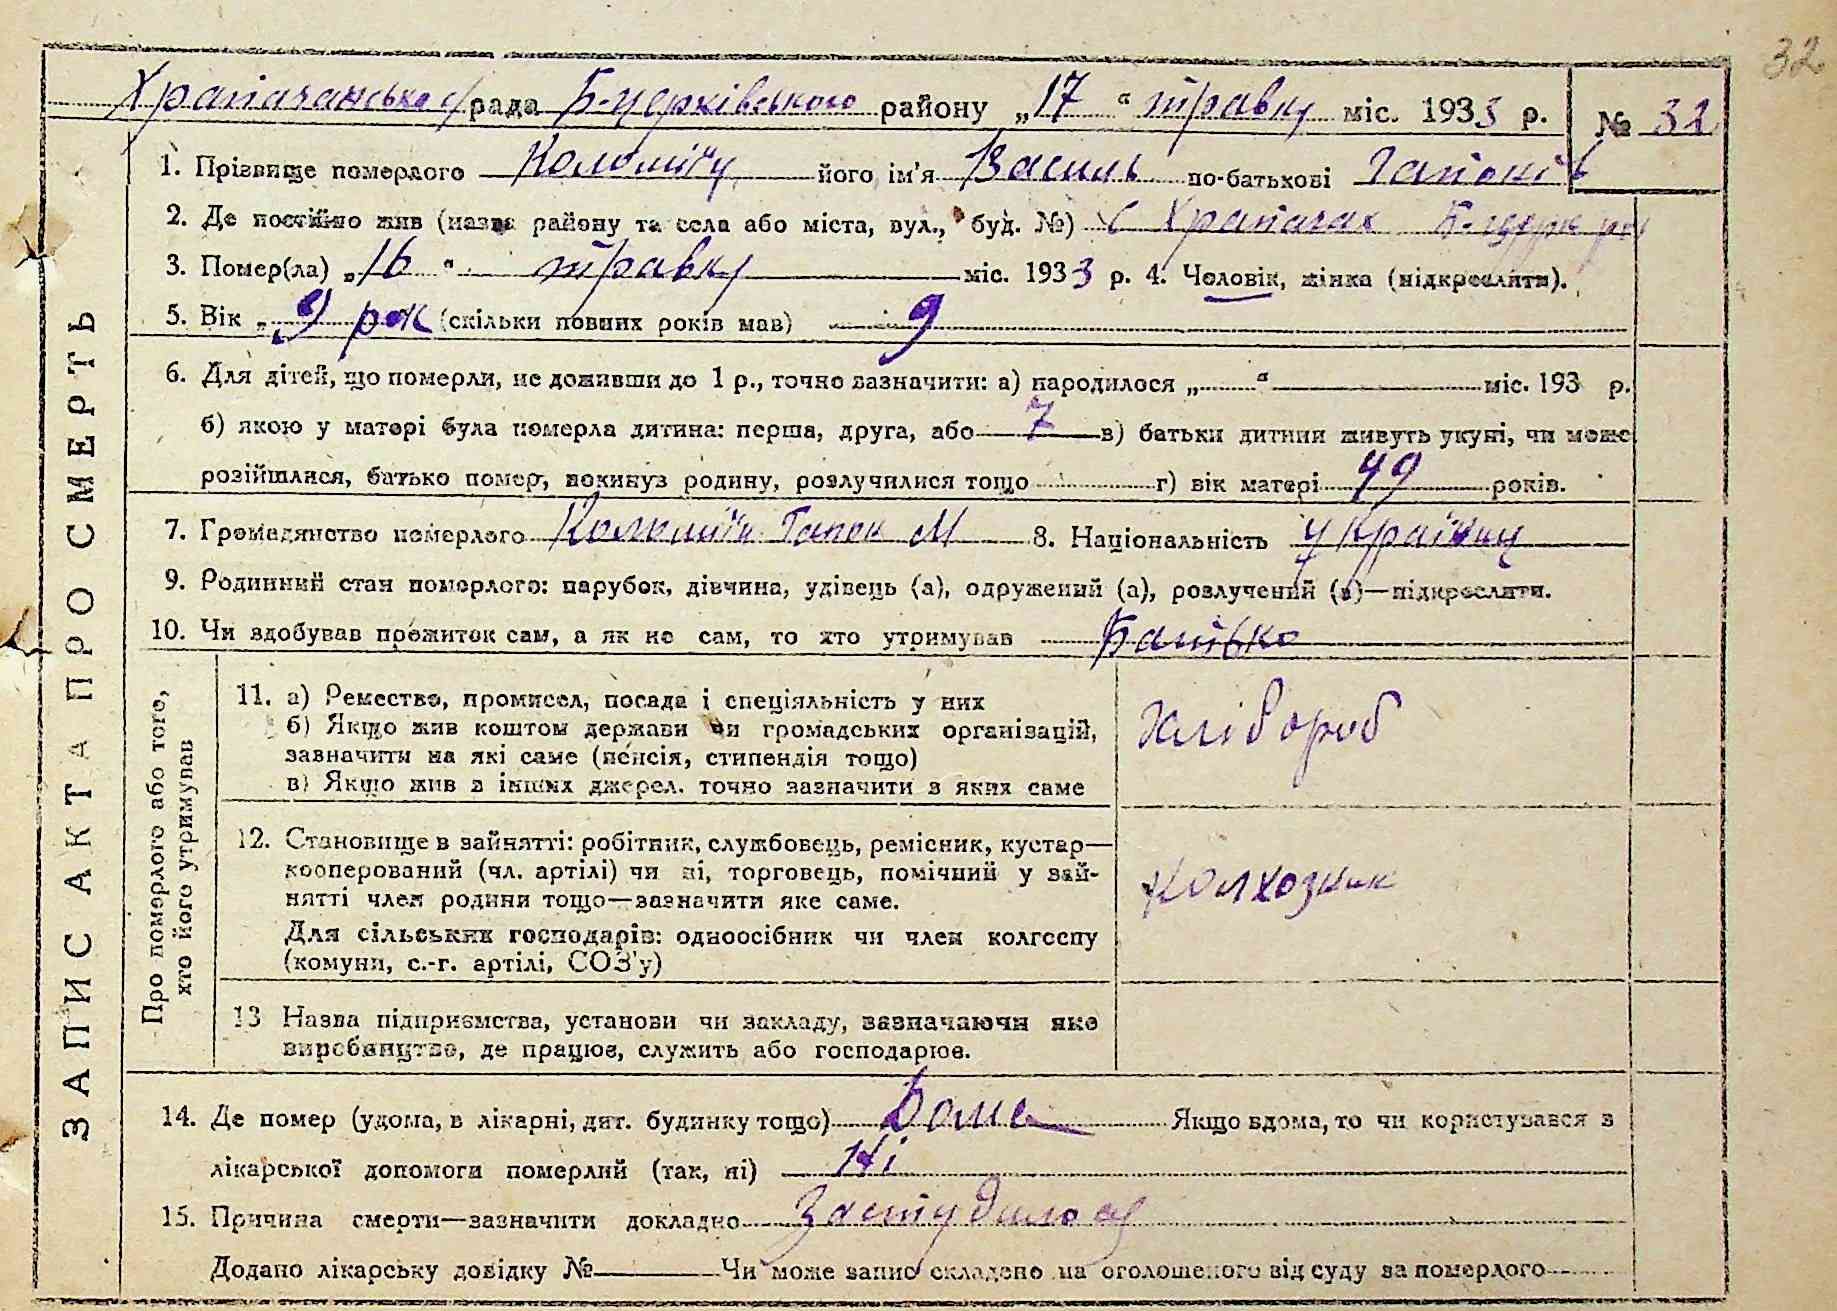 32
Храпачанська с/рада Б-церківського району „17“ травку міс. 1933 р. № 32
1. Прізвище померлого його ім'я Василь по-батькові
2. Де постійно жив (назва району та села або міста, вул., буд. №) с Храпачах Б-церк
3. Помер(ла) „16“ травку міс. 1933 р. 4. Чоловік, жінка (підкреслити).
5. Вік „9 рок (скільки повних років мав) 9
6. Для дітей, що померли, не доживши до 1 р., точно зазначити: а) народилося „ “ міс. 193 р.
б) якою у матері була померла дитина: перша, друга, або 7 в) батьки дитини живуть укупі, чи може
розійшлися, батько помер, покинув родину, розлучилися тощо г) вік матері 49 років.
7. Громадянство померлого М 8. Національність Українц
9. Родинний стан померлого: парубок, дівчина, удівець (а), одружений (а), розлучений (а)—підкреслити.
10. Чи здобував прожиток сам, а як не сам, то хто утримував Батько
ЗАПИС АКТА ПРО СМЕРТЬ
Про померлого або того,
хто його утримував
11. а) Ремество, промисел, посада і спеціяльність у них
б) Якщо жив коштом держави чи громадських організацій,
зазначити на які саме (пенсія, стипендія тощо)
в) Якщо жив з інших джерел. точно зазначити з яких саме
Хлібороб
12. Становище в зайнятті: робітник, службовець, ремісник, кустар—
кооперований (чл. артілі) чи ні, торговець, помічний у зай-
нятті член родини тощо—зазначити яке саме.
Для сільських господарів: одноосібник чи член колгоспу
(комуни, с.-г. артілі, СОЗ'у)
колхозник
13 Назва підприємства, установи чи закладу, зазначаючи яке
виробництво, де працює, служить або господарює.
14. Де помер (удома, в лікарні, дит. будинку тощо) Дома Якщо вдома, то чи користувався з
лікарської допомоги померлий (так, ні) Ні
15. Причина смерти—зазначити докладно Застудився
Додано лікарську довідку № Чи може запис складено на оголошеного від суду за померлого